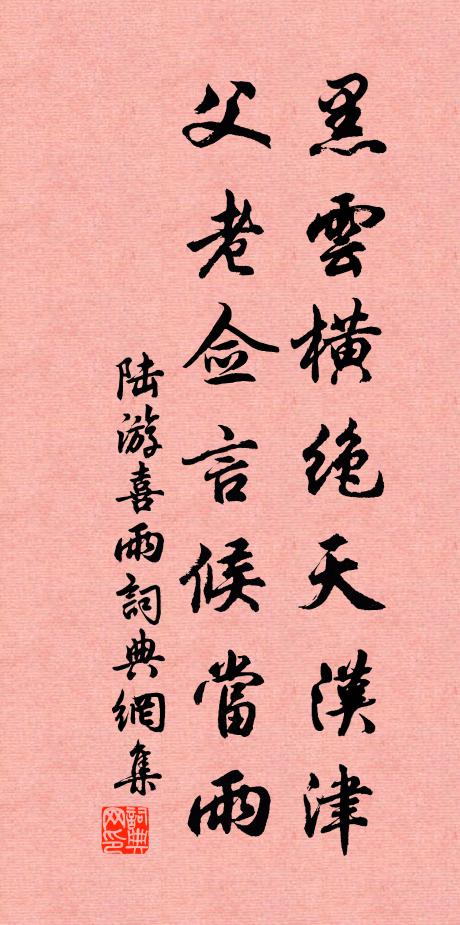 黑雲橫絶天漢津
父老僉言候當雨
陆游喜雨詞典網集
詞典网印